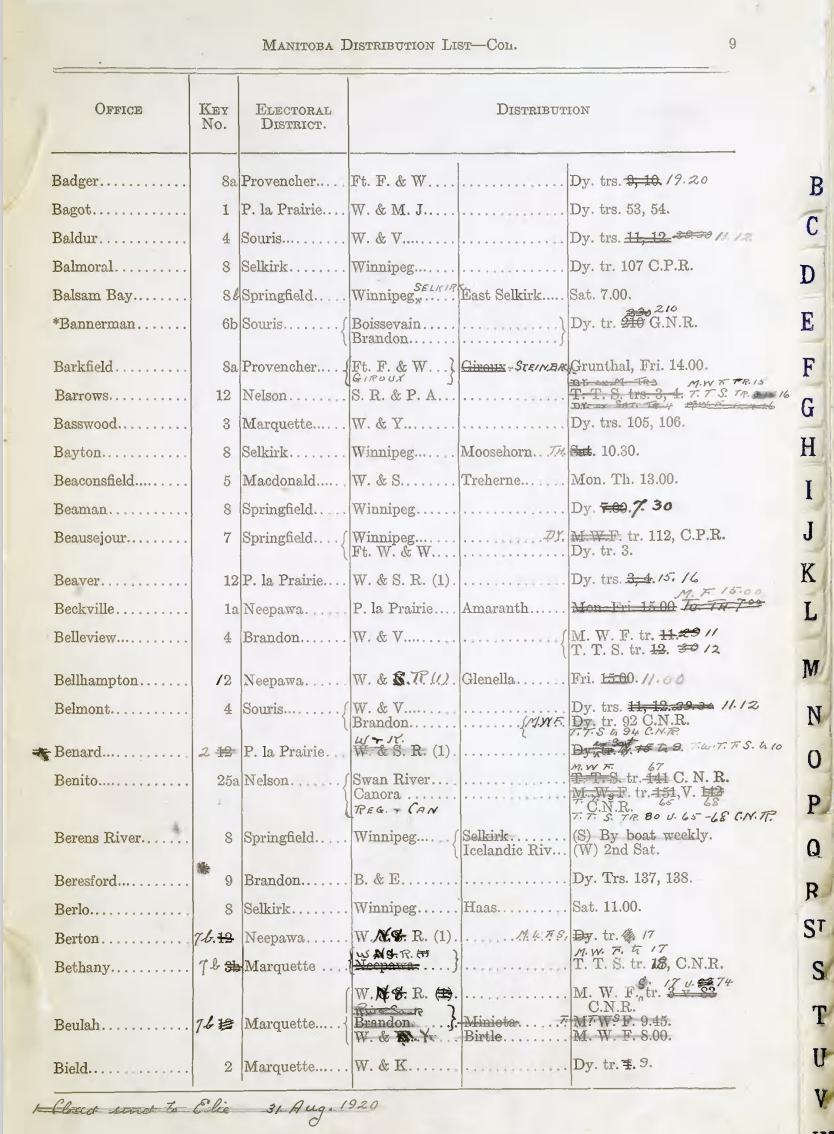 MANITOBA DISTRIBUTION LIST—Con. 9
OFFICE KEY No. ELECTORAL DISTRICT. DISTRIBUTION
Badger............ 8a Provencher..... Ft. F. & W.... ............. Dy. trs. 9, 10. 19.20
Bagot............ 1 P. la Prairie.... W. & M. J.... ............. Dy. trs. 53, 54.
Baldur............ 4 Souris......... W. & V....... ............. Dy. trs. 11, 12. 11.12
Balmoral.......... 8 Selkirk........ Winnipeg..... ............. Dy. tr. 107 C.P.R.
SELKIRK
Balsam Bay........ 8 Springfield..... Winnipeg..... East Selkirk.... Sat. 7.00.
210
*Bannerman....... 6b Souris....... { Boissevain..... ............. } Dy. tr. 210 G.N.R.
Brandon.......
Barkfield.......... 8a Provencher.... { Ft. F. & W. } Giroux - STEINBAK Grunthal, Fri. 14.00.
GIROUX
M.W F TR.15
Barrows........... 12 Nelson......... S. R. & P. A... ............. T. T. S. trs. 3, 4. T. T S. TR. 16
Basswood.......... 3 Marquette...... W. & Y....... ............. Dy. trs. 105, 106.
Bayton............ 8 Selkirk........ Winnipeg..... Moosehorn.. TH. Sat. 10.30.
Beaconsfield....... 5 Macdonald..... W. & S....... Treherne...... Mon. Th. 13.00.
Beaman........... 8 Springfield..... Winnipeg..... ............. Dy. 7.00. 7.30
Beausejour........ 7 Springfield.... { Winnipeg..... ............. DY. M.W.F. tr. 112, C.P.R.
Ft. W. & W... ............. Dy. tr. 3.
Beaver............ 12 P. la Prairie.... W. & S. R. (1). ............. Dy. trs. 3, 4. 15. 16
M. F 15.00
Beckville.......... 1a Neepawa...... P. la Prairie... Amaranth..... Mon. Fri. 15.00
Belleview......... 4 Brandon....... W. & V....... ............. { M. W. F. tr. 11. 11
T. T. S. tr. 12. 12
Bellhampton....... 12 Neepawa...... W. & S.R.W. Glenella....... Fri. 15.00. 11.00
Belmont.......... 4 Souris....... { W. & V....... ............. Dy. trs. 11, 12. 11.12
Brandon....... ............. { M.W.F. Dy. tr. 92 C.N.R.
T.T.S tr 94 C.N.R
W & R.
Benard............ 2 12 P. la Prairie.... W. & S. R. (1). .............
M. W F. 67
Benito............ 25a Nelson....... { Swan River.... ............. T. T. S. tr. 141 C. N. R.
Canora ....... ............. M. W. F. tr. 151, V. 142
REG. & CAN C.N.R. 65 68
T. T. S. TR. 80 U. 65-68 C.N.R.
Berens River....... 8 Springfield..... Winnipeg.... { Selkirk........ (S) By boat weekly.
Icelandic Riv... (W) 2nd Sat.
Beresford.......... 9 Brandon....... B. & E........ ............. Dy. Trs. 137, 138.
Berlo............. 8 Selkirk........ Winnipeg..... Haas.......... Sat. 11.00.
Berton............ 7b 12 Neepawa...... W. R. (1) ............. Dy. tr. 17
M. W. F. tr 17
Bethany.......... 7b 3b Marquette .... { Neepawa } ............. T. T. S. tr. 18, C.N.R.
74
W. R. (1) ............. M. W. F. tr.
C.N.R.
Beulah............ 7b 12 Marquette.... { Brandon } Miniota M. W. F. 9.45.
W. & Y. Birtle......... M. W. F. 8.00.
Bield.............. 2 Marquette...... W. & K....... ............. Dy. tr. 1. 9.
Closed send to Elie 31 Aug. 1920
B
C
D
E
F
G
H
I
J
K
L
M
N
O
P
Q
R
ST
S
T
U
V